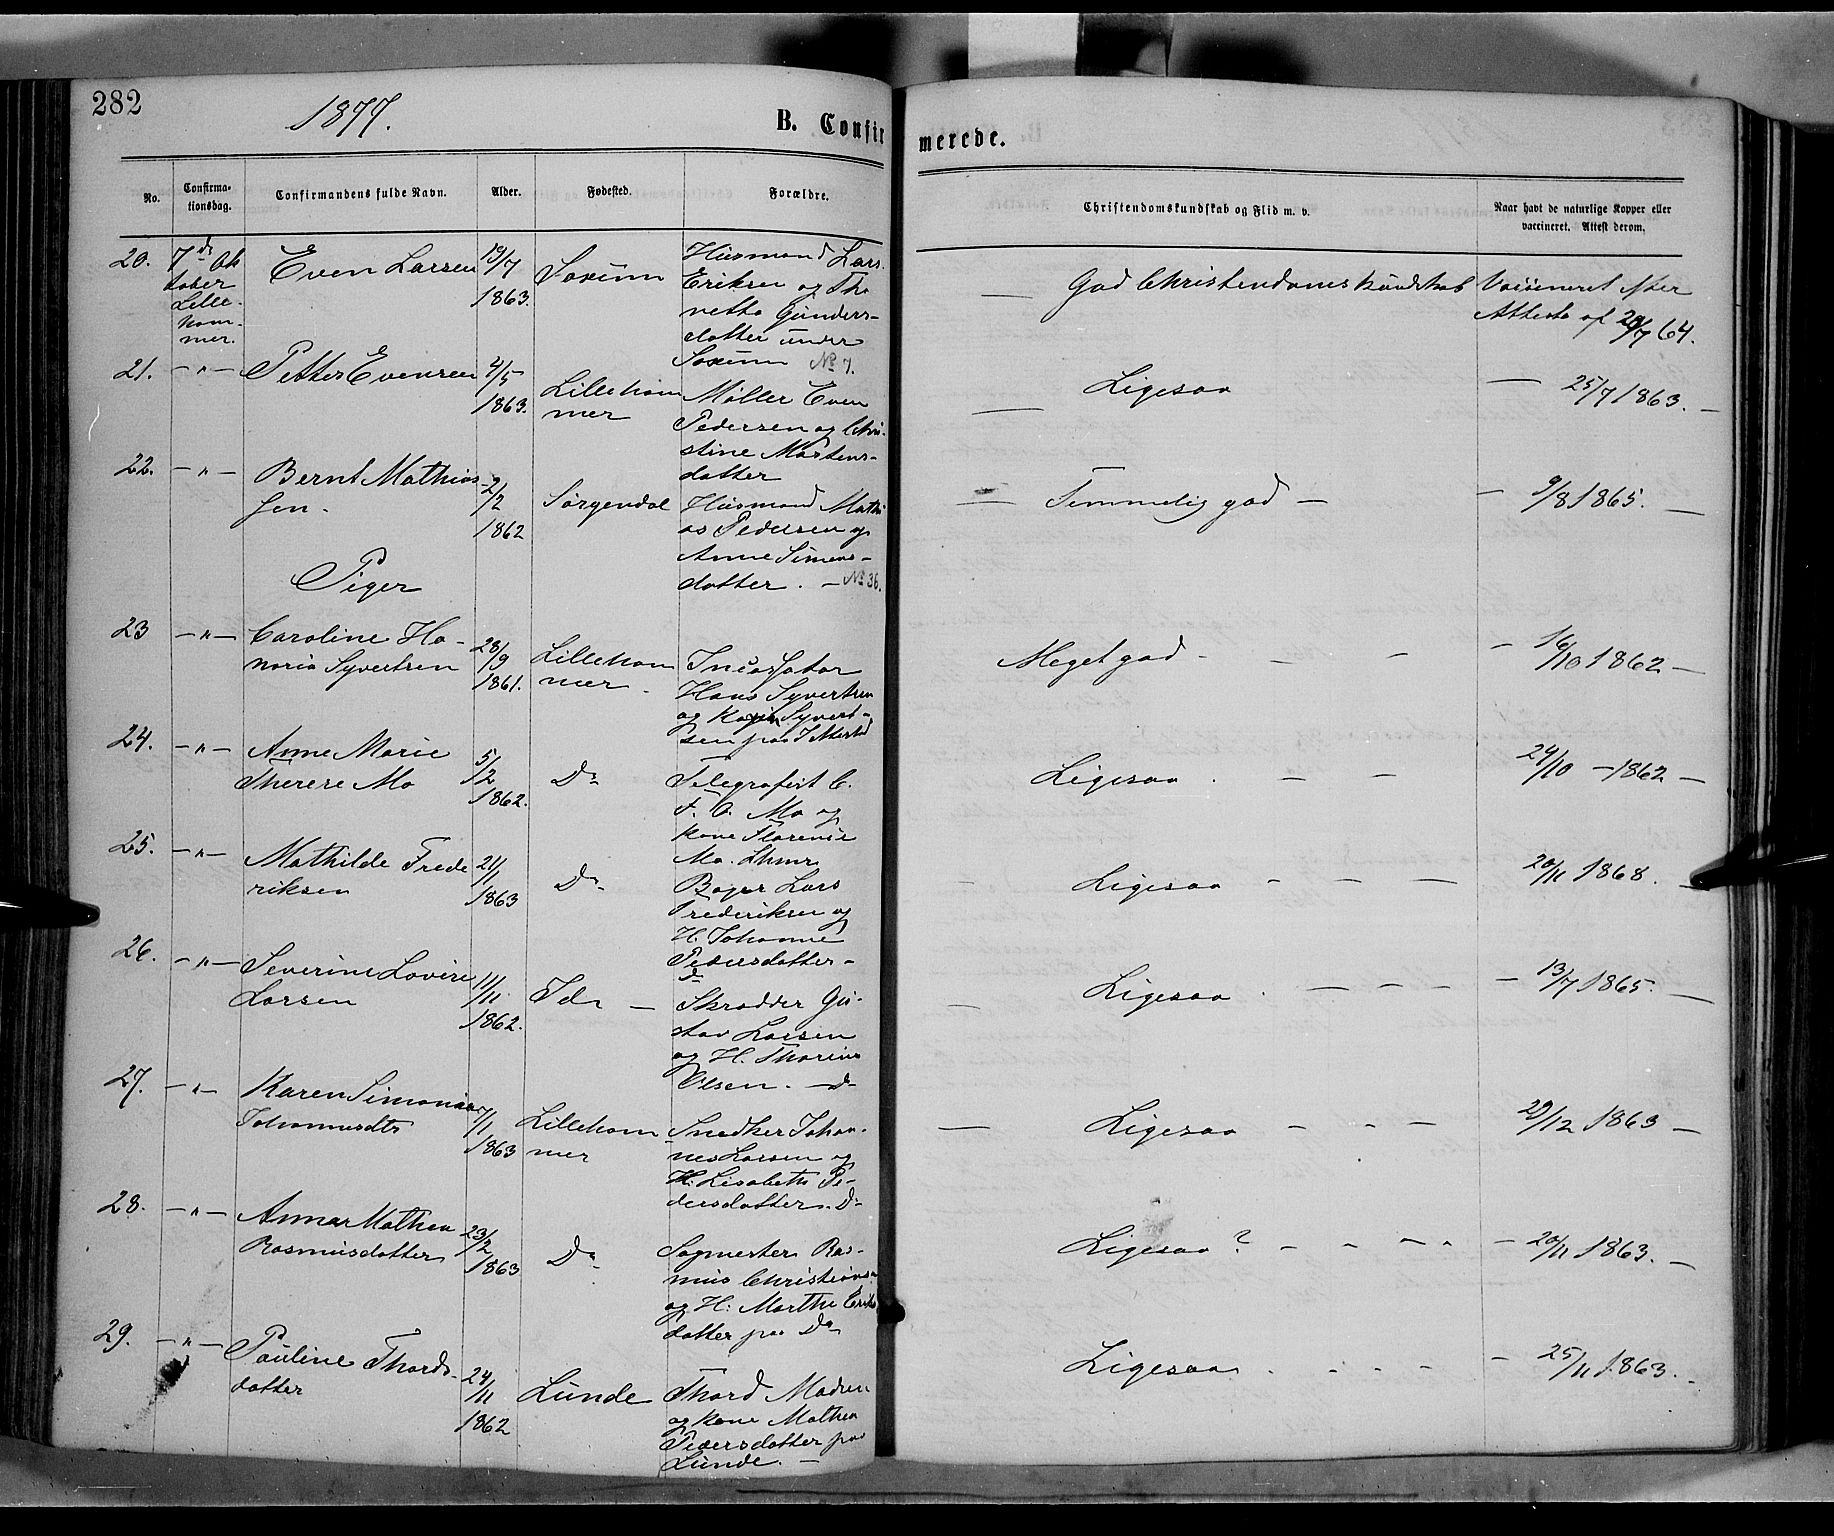 282
1877.
B. Confir
merede.
No.
Confirma-
tionsdag.
Confirmandens fulde Navn.
Alder.
Fødested.
Forældre.
Christendomskundskab og Flid m. v.
Naar havt de naturlige Kopper eller
vaccineret. Attest derom.
20.
7de Ok
tober
Lille-
ham-
mer.
Even Larsen
19/7
1863.
Saxum
Husmand Lars
Eriksen og Tho
netta Gunders-
datter under
Saxum No 7.
— God Christendomskundskab
Vaccineret efter
Attest af 20/7 64.
21.
— " —
Petter Evensen
4/5
1863.
Lilleham
mer
Møller Even
Pedersen og Chri-
stine Martens-
datter
— Ligesaa
— 25/7 1863. —
22.
— " —
Bernt Mathias
sen.
2/2
1862
Sørgendal
Husmand Mathi
as Pedersen og
Anne Simens-
datter. — No 36.
— Temmelig god —
— 9/8 1865. —
Piger
23
— " —
Caroline Ho-
noria Syvertsen
28/9
1861.
Lilleham
mer.
Hans Syvertsen
og Karin Syvert-
sen paa
Meget god - — —
— 16/10 1862 —
24.
— " —
Anne Marie
Therese Mo
5/2
1862.
Do
Telegrafist C.
F. O. Mo og
Kone Florense
Mo. Lhmr
Ligesaa . — —
24/10 — 1862 —
25.
— " —
Mathilde Frede
riksen
21/1
1863
Do
Bager Lars
Frederiksen og
H. Johanne
Pedersdatter —
Do
— Ligesaa — — — —
20/11 1868. —
26.
— " —
Severine Lovise
Larsen
11/11
1862.
Do —
Skrædder Gu-
stav Larsen
og H. Thorine
Olsen. — Do
— Ligesaa . — — — —
— 13/7 1865. —
27.
— " —
Karen Simonine
Johannesdtr
7/1
1863
Lilleham
mer
Snedker Johan-
nes Larsen og
H. Lisabeth Pe-
dersdatter. Do
— Ligesaa — - - —
29/12 1863 —
28.
— " —
Anna Mathea
Rasmusdatter
23/2
1863
Do
Sagmester Ras-
mus Christians
og H: Marthe Eriks
datter paa Do
Ligesaa? — - — -
— 20/11 1863. —
29.
— " —
Pauline Thords-
datter
24/11
1862
Lunde
Thord Madsen
og Kone Mathea
Pedersdatter paa
Lunde. —
Ligesaa . - - -
— 25/11 1863. -